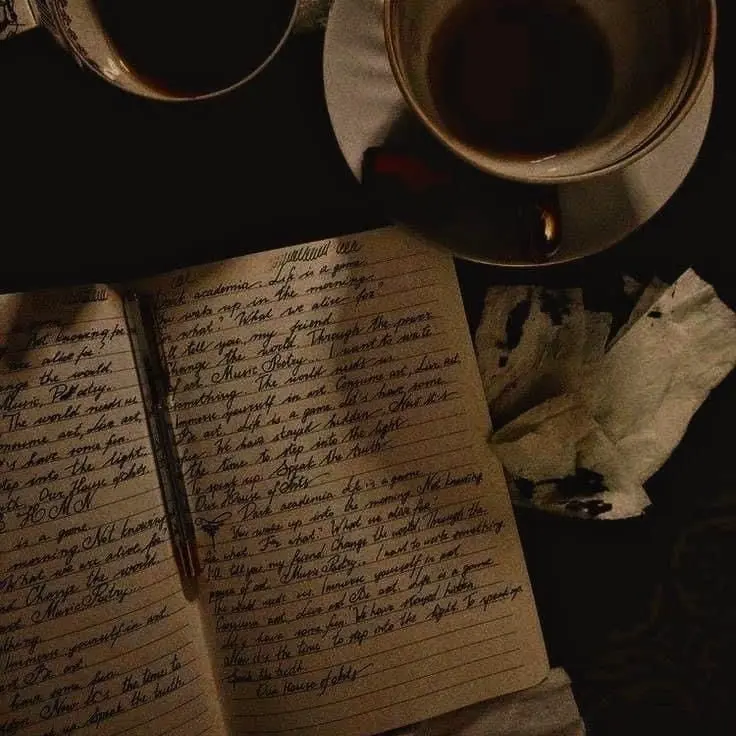 Not knowing for
we alive for?
nge the world.
Music, Poetry.
The world needs us
onsume art, Live art.
s have some fun.
step into the light.
th. Our House of Arts.
H M N
is a game.
morning. Not knowing
What we are alive for
Change the world.
Music Poetry...
thing.
Immerse yourself in art
Be art.
have some fun.
Now it's the time to
Speak the truth.
Dark academia. Life is a game.
You wake up in the morning.
For what? What we alive for?
I'll tell you, my friend.
Change the world. Through the power
of art. Music. Poetry... I want to write
something. The world needs us.
Immerse yourself in art. Consume art, Live art.
Be art. Life is a game. Let's have some
fun. We have stayed hidden. Now it's
the time to step into the light.
To speak up. Speak the truth.
Our House of Arts
Dark academia. Life is a game.
You wake up into the morning. Not knowing
for what. For what? What we alive for?
I'll tell you, my friend. Change the world. Through the
power of art. Music. Poetry... I want to write something.
The world needs us. Immerse yourself in art.
Consume art. Live art. Be art. Life is a game.
Let's have some fun. We have stayed hidden
it's the time to step into the light. To speak up.
Speak the truth.
Our House of Arts